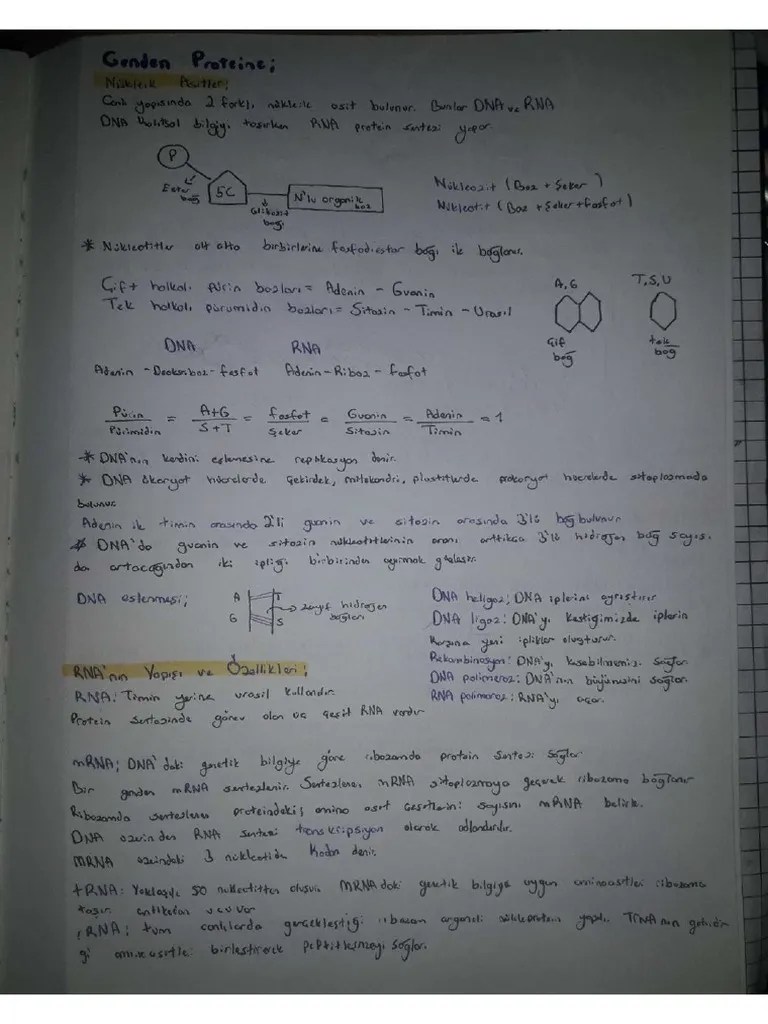 Genden Proteine;
Nükleik Asitler;
Canlı yapısında 2 farklı nükleik asit bulunur. Bunlar DNA ve RNA
DNA kalıtsal bilgiyi taşırken RNA protein sentezi yapar.
P
Ester bağı
5C
Glikozit bağı
N'lu organik baz
Nükleozit (Baz + Şeker)
Nükleotit (Baz + Şeker + Fosfat)
* Nükleotitler alt alta birbirlerine fosfodiester bağı ile bağlanır.
Çift halkalı pürin bazları = Adenin - Guanin
Tek halkalı pürumidin bazları = Sitozin - Timin - Urasil
A, G
Çif bağ
T, S, U
tek bağ
DNA RNA
Adenin - Deoksiboz - fosfat Adenin - Riboz - fosfat
Pürin / Pürimidin = A+G / S+T = fosfat / Şeker = Guanin / Sitozin = Adenin / Timin = 1
* DNA'nın kendini eşlemesine replikasyon denir.
* DNA ökaryot hücrelerde çekirdek, mitokondri, plastitlerde prokaryot hücrelerde sitoplazmada
bulunur
Adenin ile timin arasında 2'li guanin ve sitozin arasında 3'lü bağ bulunur
* DNA'da guanin ve sitozin nükleotitlerinin oranı arttıkça 3'lü hidrojen bağ sayısı
da artacağından iki ipliği birbirinden ayırmak güçleşir.
DNA eşlenmesi;
A T
G S
zayıf hidrojen bağları
DNA heligaz; DNA iplerini ayrıştırır
DNA ligaz: DNA'yı kestiğimizde iplerin
karşına yeni iplikler oluşturur.
Rekombinasyon: DNA'yı kesebilmemizi sağlar
DNA polimeraz: DNA'nın büyümesini sağlar.
RNA polimeraz: RNA'yı açar.
RNA'nın Yapısı ve Özellikleri;
RNA: Timin yerine urasil kullanılır.
Protein sentezinde görev alan üç çeşit RNA vardır
mRNA; DNA'daki genetik bilgiye göre ribozomda protein sentezi sağlar
Bir genden mRNA sentezlenir. Sentezlenen mRNA sitoplazmaya geçerek ribozoma bağlanır
Ribozomda sentezlenen proteindeki amino asit çeşitlerini sayısını mRNA belirler.
DNA üzerinden RNA sentezi transkripsiyon olarak adlandırılır.
MRNA üzerindeki 3 nükleotide kodon denir.
tRNA: Yaklaşık 50 nükleotitten oluşur. MRNA daki genetik bilgiye uygun aminoasitleri ribozoma
taşır. antikodon
rRNA; tüm canlılarda gerçekleştiği ribozom organeli nükleoprotein yapılı.
aminoasitle birleştirerek peptitleşmeyi sağlar.